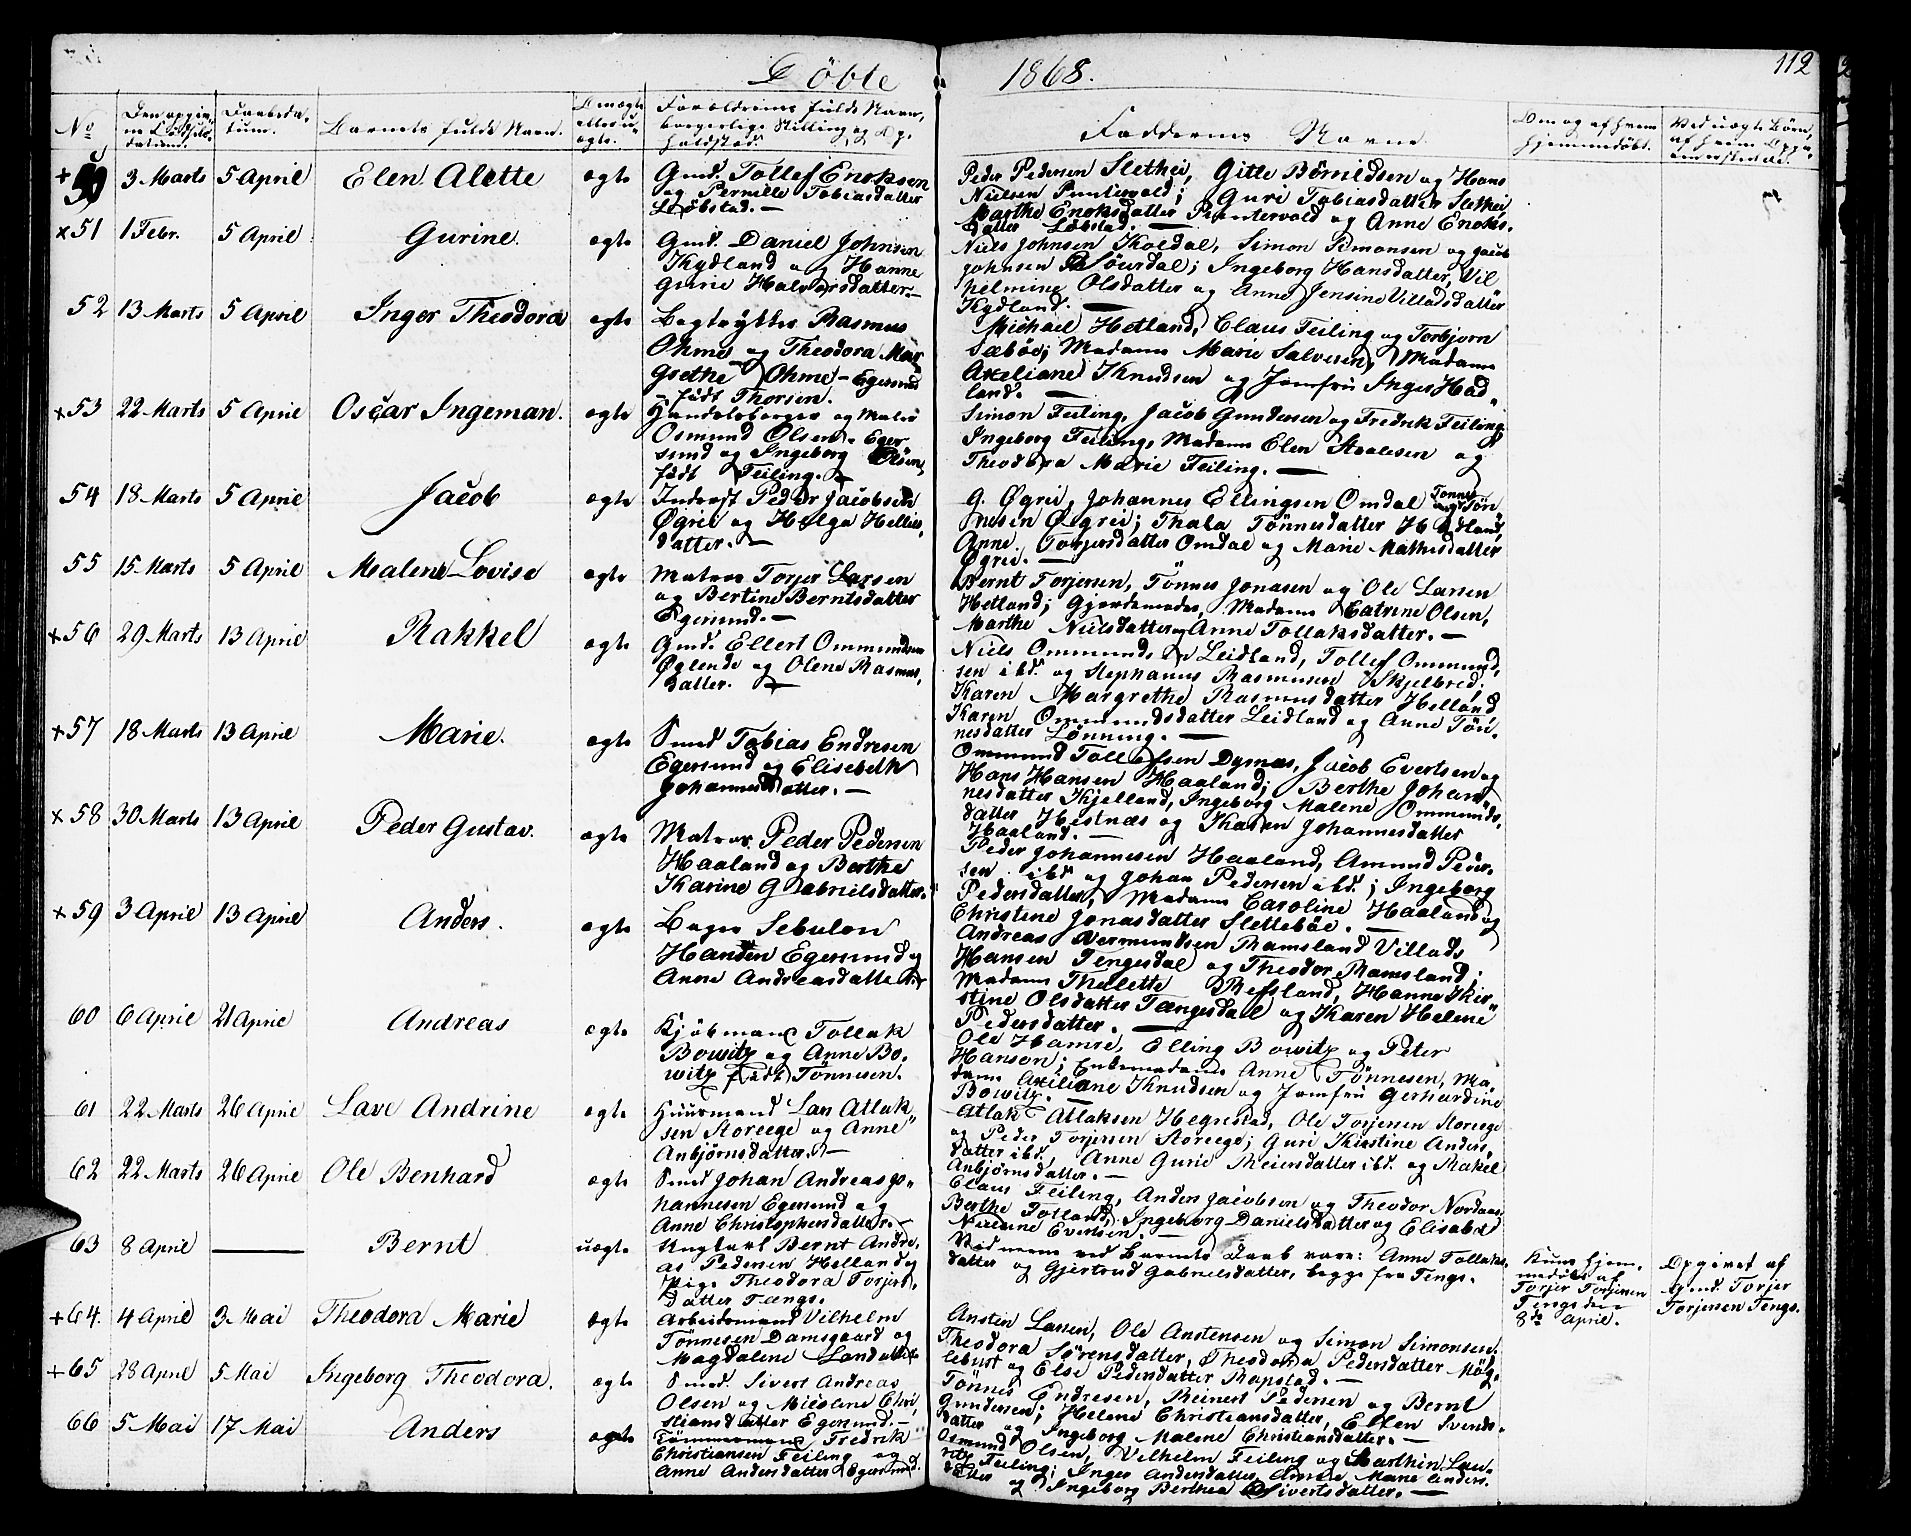 Döbte 1868. 112
No
Barnets fulde Navn.
Faddernes Navne.
+ 50 3 Marts 5 April Elen Alette ægte Gmd. Tollef Enoksen
og Pernille Tobiasdatter
Løbstad. —
Peder Pedersen Slethei, Gitle Børnildsen og Hans
Nielsen Puntervold; Guri Tobiasdatter Slethei,
Marthe Enoksdatter Puntervold og Anne Enoks-
datter Løbstad. —
x 51 1 Febr. 5 April Gurine. ægte Gmd. Daniel Johnsen
Kydland og Hanne
Gurie Halvorsdatter. —
Niels Johnsen Koldal, Simon Simonsen og Jacob
Johnsen Sourdal; Ingeborg Hansdatter, Vil
helmine Olsdatter og Anne Jensine Villadsdatter
Kydland. —
52 13 Marts 5 April Inger Theodora ægte Rasmus
Ohme og Theodora Mar
grethe Ohme - Egersund
- født Thorsen.
Michael Hetland, Claus Feiling og Torbjørn
Sæbøe; Madame Marie Salvesen, Madame
Axeliane Knudsen og Jomfru Inger Had-
land. —
x 53 22 Marts 5 April Oscar Ingeman. ægte Handelsborger og
Osmund Olsen Eger
sund og Ingeborg Olsen,
født Feiling. —
Simon Feiling, Jacob Gundersen og Fredrik Feiling
Ingeborg Feiling, Madame Elen Aalesen og
Theodora Marie Feiling. —
54 18 Marts 5 April Jacob ægte Inderst Peder Jacobsen
Øgrei og Helga Hellies-
datter. —
G. Øgrei, Johannes Ellingsen Omdal og Tønnes Tøn-
nesen Øgrei; Thala Tönnesdatter Hadland,
Anne Torjersdatter Omdal og Marie Mathisdatter
Øgrei. —
55 15 Marts 5 April Malene Lovise ægte Matros Torjer Larsen
og Bertine Berntsdatter
Egersund. —
Bernt Torjersen, Tönnes Jonasen og Ole Larsen
Hetland; Gjordemoder, Madame Catrine Olsen,
Marthe Nielsdatter og Anne Tollaksdatter. —
x 56 29 Marts 13 April Rakkel ægte Gmd. Ellert Ommundsen
Øglende og Olene Rasmus-
datter. —
Niels Ommundsen Leidland, Tollef Ommund-
sen ibd. og Stephanus Rasmusen Skjelbred.
Karen Margrethe Rasmusdatter Helland
Karen Ommundsdatter Leidland og Anne Tön-
nesdatter Lønning. —
x 57 18 Marts 13 April Marie. ægte Smed Tobias Endresen
Egersund og Elisebeth
Johannesdatter. —
Ommund Tollefsen Dysnæs, Jacob Evertsen og
Hans Hansen Haaland; Berthe Johan-
nesdatter Kjelland, Ingeborg Malene Ommunds-
datter Hestnæs og Karen Johannesdatter
Haaland. —
x 58 30 Marts 13 April Peder Gustav. ægte Matros Peder Pedersen
Haaland og Berthe
Karine Gabrielsdatter.
Peder Johannesen Haaland, Amund Peder-
sen ibd. og Johan Pedersen ibd.; Ingeborg
Pedersdatter, Madame Caroline Haaland og
Christine Jonasdatter Slettebøe. —
x 59 3 April 13 April Anders. ægte Bager Sebulon
Hansen Egersund og
Anne Andreasdatter
Andreas Vermundsen Ramsland Villads
Hansen Tengesdal og Theodor Ramsland;
Madame Thelette Refsland, Hanne Kir-
stine Olsdatter Tængesdal og Karen Helene
Pedersdatter. —
60 6 April 21 April Andreas ægte Kjöbmand Tollak
Bowitz og Anne Bo-
witz født Tönnesen.
Ole Hamre, Elling Bowitz og Peter
Hanson; Enkemadame Anne Tönnesen, Ma-
dame Axiliane Knudsen og Jomfru Gerhardine
Bowitz. —
61 22 Marts 26 April Lave Andrine ægte Huusmand Lars Atlak-
sen Storeege og Anne
Anbjørnsdatter. —
Atlak Atlaksen Hegrestad, Ole Torjersen Storeege
og Peder Torjersen Storeege; Guri Kirstine Anders-
datter ibd., Anne Gurie Reiersdatter ibd. og Rakel
Anbjørnsdatter. —
62 22 Marts 26 April Ole Benhard ægte Smed Johan Andreas Jo-
hannesen Egersund og
Anne Christophersdatter. —
Claus Feiling, Anders Jacobsen og Theodor Nordaas
Berthe Totland, Ingeborg Danielsdatter og Elisabet
Nielsine Evertsen. —
63 8 April — Bernt uægte Ungkarl Bernt Andre-
as Pedersen Helland og
Pige Theodora Torjers-
datter Tængs.
Vidnerne ved Barnets Daab vare: Anne Tollaks-
datter og Gjertrud Gabrielsdatter, begge fra Tengs.
Kuns hjem-
medøbt af
Torjer Torjersen
Tengs den
8de April.
Opgivet af
Gmd. Torjer
Torjersen Tengs.
+ 64. 4 April 3 Mai Theodora Marie ægte Arbeidsmand Vilhelm
Tönnesen Damsgaard og
Magdalene
Ansten Larsen, Ole Anstensen og Simon Simonsen.
Theodora Sørensdatter, Theodora Pedersdatter Møg-
lebust og Else Pedersdatter Rapstad. —
+ 65 28 April 5 Mai Ingeborg Theodora. ægte Smed. Sivert Andreas
Olsen og Nicoline Chri-
stiansdatter Egersund. —
Tönnes Endresen, Reinert Pedersen og Bernt
Gundersen; Helene Christiansdatter, Ellen Svends-
datter og Ingeborg Malene Christiansdatter. —
66 5 Mai 17 Mai Anders ægte Tömmermand Fredrik
Christiansen Feiling og
Anne Andersdatter Egersund.
Osmund Olsen, Vilhelm Feiling og Lau-
ritz Feiling; Inger Andersdatter, Anne Marie Anders-
datter og Ingeborg Berthea Sivertsdatter. —